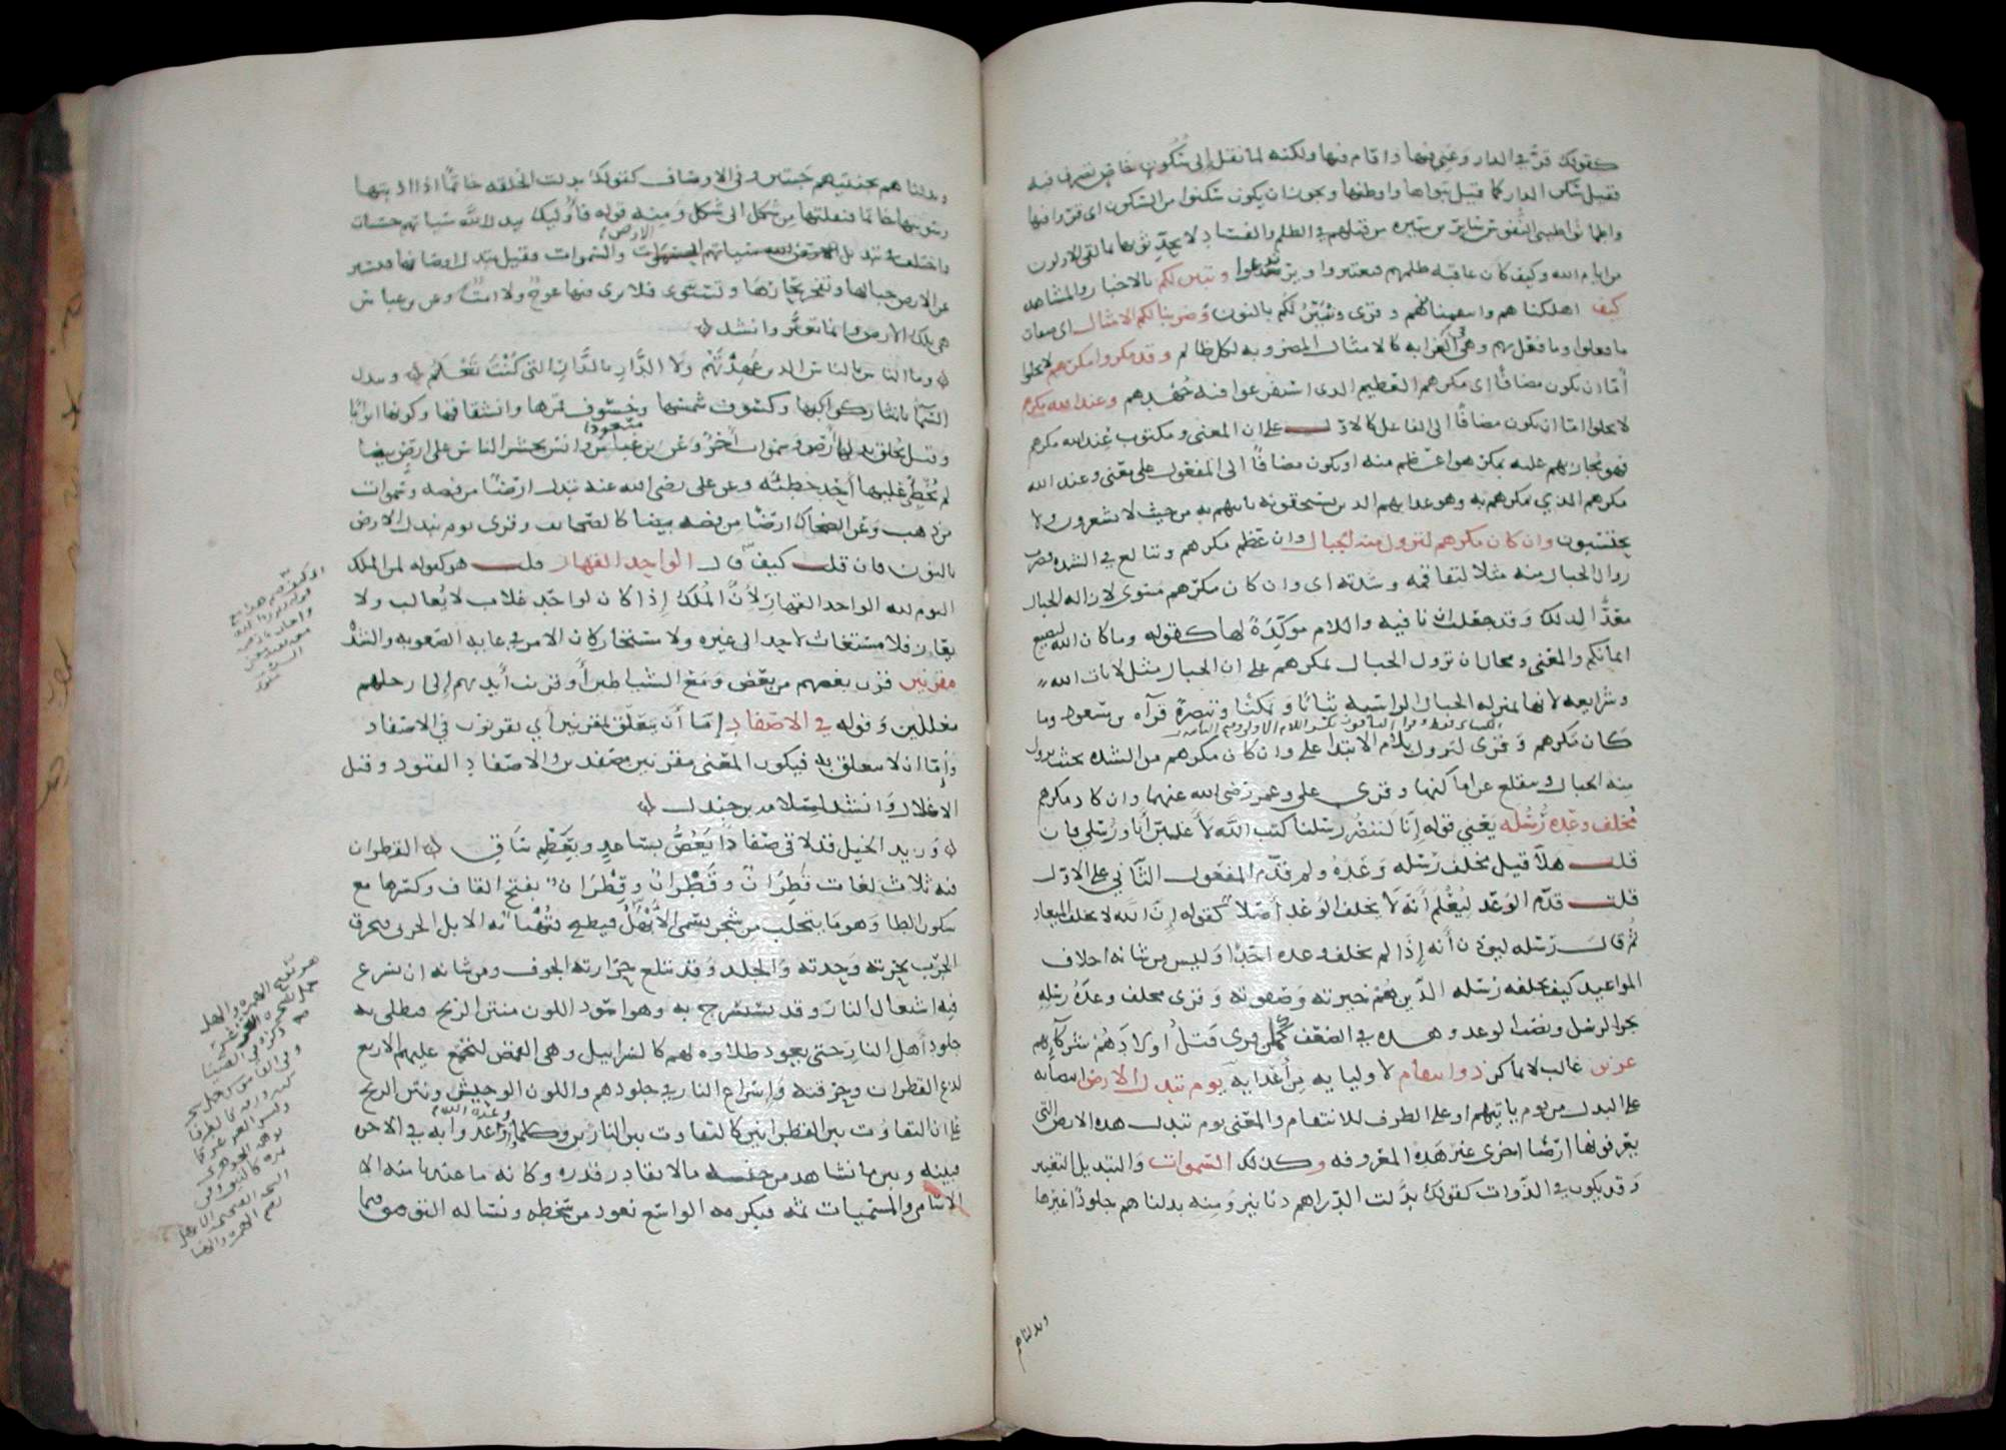 كقولك قرّ في الدار وغني فيها واقام فيها ولكنه لما نقل إلى سكون خاص تصرف فيه
فقيل سكن الدار كما قيل تبوأها واوطنها ويجوز ان يكون سكنوا من السكون اى قرّوا فيها
واطمأنوا طيبى النفوس سايرين سيرة من قبلهم في الظلم والفساد لا يحدثونها بما لقى الاولون
من ايام الله وكيف كان عاقبة ظلمهم فيعتبروا ويرتدعوا وتبين لكم بالاخبار والمشاهدة
كيف اهلكناهم وانتقمنا منهم وقرى ونبيّن لكم بالنون وضربنا لكم الامثال اى صفات
ما فعلوا وما فعل بهم وهى في الغرابه كالامثال المضروبه لكل ظالم وقد مكروا مكرهم لا يخلوا
امّا ان يكون مضافًا اى مكرهم العظيم الذى استفرغوا فيه جهدهم وعند الله مكرهم
لا يخلوا امّا ان يكون مضافًا الى الفاعل كالاول على ان المعنى ومكتوب عند الله مكرهم
فهو مجازيهم عليه بمكر هو اعظم منه او يكون مضافًا الى المفعول على معنى وعند الله
مكرهم الذي يمكرهم به وهو عذابهم الذى يستحقونه ياتيهم به من حيث لا يشعرون ولا
يحتسبون وان كان مكرهم لتزول منه الجبال وان عظم مكرهم وتبالغ في الشده فضرب
زوال الجبال منه مثلا لتفاقمه وشدته اى وان كان مكرهم مستوى لازالة الجبال
معدًّا لذلك وقد جعلت ان نافيه واللام موكّدة لها كقوله وما كان الله ليضيع
ايمانكم والمعنى ومحال ان تزول الجبال بمكرهم على ان الجبال مثل لايات الله
وشرايعه لانها بمنزله الجبال الراسيه ثباتًا وتمكنا وتنصره قرآة بن مسعود وما
كان مكرهم وقرى لتزول بلام الابتدا على وان كان مكرهم من الشده بحيث تزول
منه الجبال وتنقلع عن اماكنها وقرى على وعمر رضى الله عنهما وان كاد مكرهم
مخلف وعده رسله يعني قوله إنّا لننصر رسلنا كتب الله لأغلبن أنا ورسلي فان
قلت هلاّ قيل مخلف رسله وعده ولم قدّم المفعول الثاني على الاول
قلت قدّم الوعد ليُعلم أنه لا يخلف الوعد أصلاً كقوله إن الله لا يخلف الميعاد
ثم قال رسله ليوذن أنه إذا لم يخلف وعده احدًا وليس من شانه اخلاف
المواعيد كيف يخلفه رسله الذين هم خيرته وصفوته وقرى مخلف وعدَه رسلِه
بجر الرسل ونصب الوعد وهذه في الضعف كمن قرى قتل أولادَهم شركائهم
عزيز غالب لا يماكر ذو انتقام لاوليايه من أعدايه يوم تبدل الارض انتصابه
على البدل من يوم ياتيهم او على الظرف للانتقام والمعنى يوم تبدل هذه الارض التى
يعرفونها ارضًا اخرى غير هذه المعروفه وكذلك السموات والتبديل التغيير
وقد يكون في الذوات كقولك بدّلت الدراهم دنانير ومنه بدلناهم جلودًا غيرها
وبدلناهم
وبدلناهم بجنتيهم جنتين وفى الاوصاف كقولك بدلت الحلقه خاتمًا اذا اذبتها
وسويتها خاتما فنقلتها من شكل الى شكل ومنه قوله فأوليك يبدل الله سياتهم حسنات
واختلف في تبديل الارض والسموات فقيل تبدل اوصافها فتسير
عن الارض جبالها وتفجر بحارها وتسوى فلا يرى فيها عوج ولا امت وعن بن عباس
هى تلك الارض وانما تغيّر وانشد
وما الناس بالناس الذين عهدتهم ولا الدار بالدار التي كنت تعلم وتبدل
السما بانتثار كواكبها وكسوف شمسها وخسوف قمرها وانشقاقها وكونها ابوابًا
وقيل يخلق بدلها أرض وسموات أخر وعن بن مسعود وانس يحشر الناس على ارض بيضا
لم يُخطِئ عليها أحد خطيئة وعن على رضى الله عنه تبدل ارضًا من فضه وسموات
من ذهب وعن الضحاك ارضًا من فضه بيضا كالصحائف وقرى يوم نبدل الارض
بالنون فان قلت كيف قال الواحد القهار قلت هو كقوله لمن الملك
اليوم لله الواحد القهار لأن الملك إذا كان لواحد غلاب لا يُغالب ولا
يعازّ فلا مستغاث لاحد الى غيره ولا مستجار كان الامر في غايه الصعوبه والشدة
مقرنين قرن بعضهم مع بعض ومع الشياطين أو قرنت أيديهم إلى ارجلهم
مغللين وقوله في الاصفاد إمّا أن يتعلق بمقرنين أي يقرنون في الاصفاد
وإمّا ان لا يتعلق به فيكون المعنى مقرنين مصفدين والاصفاد القيود وقيل
الاغلال وانشد لسلامه بن جندل
وزيد الخيل قد لاقى صفادًا يعض بساعد وبعظم ساق القطران
فيه ثلاث لغات قَطِران وقَطْران وقِطْران بفتح القاف وكسرها مع
سكون الطا وهو ما يتحلب من شجر يسمى الأبهل فيطبخ فتُهنأ به الابل الجربى فيحرق
الجرب بحره وحدته والجلد وقد تبلغ حرارته الجوف ومن شانه ان يسرع
فيه اشتعال النار وقد يستسرج به وهو اسود اللون منتن الريح فيطلى به
جلود أهل النار حتى يعود طلاوه لهم كالسرابيل وهى القمص لتجتمع عليهم الاربع
لذع القطران وحرقته وإسراع النار في جلودهم واللون الوحش ونتن الريح
على ان التفاوت بين القطرانين كالتفاوت بين النارين وكلما وعده الله او اوعد به في الاخره
فبينه وبين ما نشاهد من جنسه ما لا يقادر قدره وكانه ما عندنا منه الا
الاسامي والمسميات ثمه فبكرمه الواسع نعوذ من سخطه ونساله التوفيق فيما